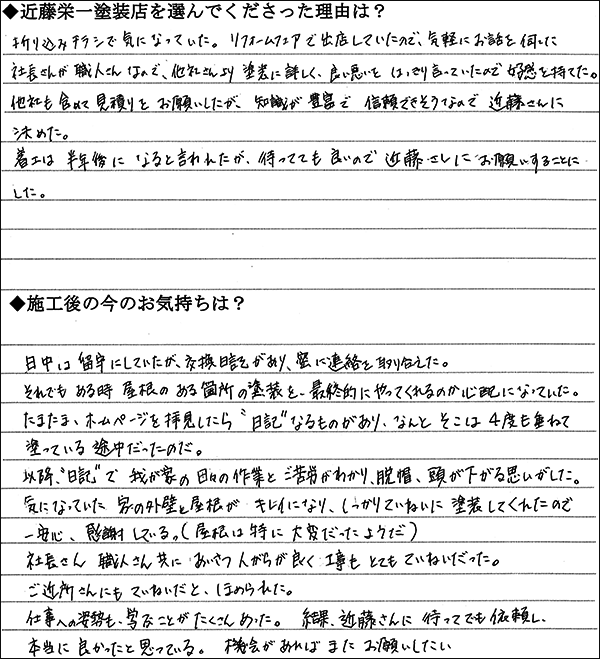 ◆近藤栄一塗装店を選んでくださった理由は？
折り込みチラシで気になっていた。リフォームフェアで出店していたので、気軽にお話を伺した
社長さんが職人さんなので、他社さんより塗装に詳しく、良い悪いをはっきり言っていたので好感を持てた。
他社も含めて見積りをお願いしたが、知識が豊富で信頼できそうなので近藤さんに
決めた。
着工は半年後になると言われたが、待ってても良いので近藤さんにお願いすることに
した。
◆施工後の今のお気持ちは？
日中は留守にしていたが、交換日記があり、密に連絡を取り合えた。
それでもある時屋根のある箇所の塗装を、最終的にやってくれるのか心配になっていた。
たまたま、ホームページを拝見したら“日記”なるものがあり、なんとそこは4度も重ねて
塗っている途中だったのだ。
以降、“日記”で我が家の日々の作業とご苦労がわかり、脱帽、頭が下がる思いがした。
気になっていた家の外壁と屋根がキレイになり、しっかりていねいに塗装してくれたので
一安心、感謝している。（屋根は特に大変だったようだ）
社長さん職人さん共にあいさつ人がらが良く工事もとてもていねいだった。
ご近所さんにもていねいだと、ほめられた。
仕事への姿勢も、学ぶことがたくさんあった。結果、近藤さんに待ってでも依頼し、
本当に良かったと思っている。機会があればまたお願いしたい